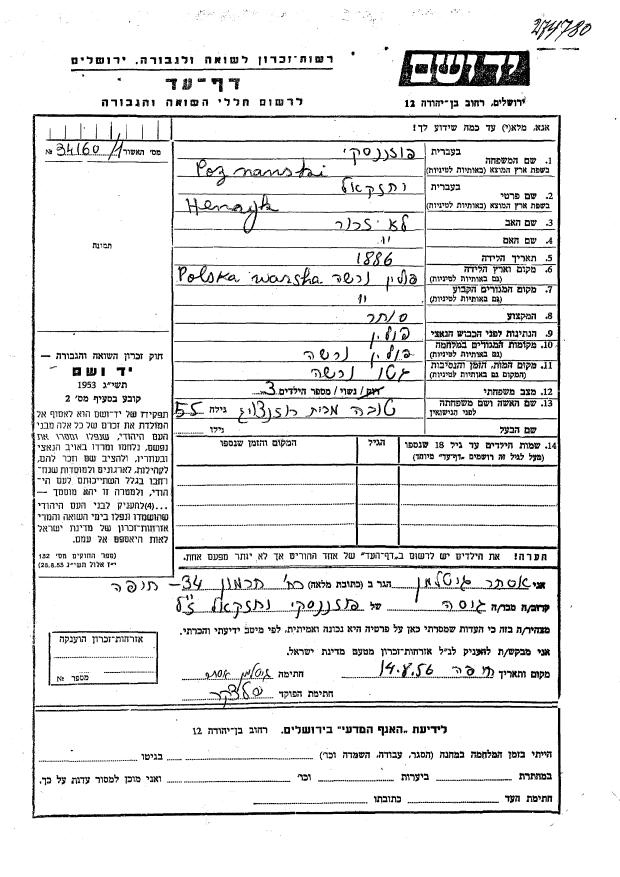 274780
רשות-זכרון לשואה ולגבורה, ירושלים
דף-עד
לרשום חללי השואה והגבורה
יד ושם
ירושלים, רחוב בן-יהודה 12
מס׳ האשור 34160/1 №
תמונה
חוק זכרון השואה והגבורה —
יד ושם
תשי״ג 1953
קובע בסעיף מס׳ 2
תפקידו של יד-ושם הוא לאסוף אל
המולדת את זכרם של כל אלה מבני
העם היהודי, שנפלו ומסרו את
נפשם, נלחמו ומרדו באויב הנאצי
ובעוזריו, ולהציב שם וזכר להם,
לקהילות, לארגונים ולמוסדות שנח־
רבו בגלל השתייכותם לעם הי־
הודי, ולמטרה זו יהא מוסמך —
...(4)להעניק לבני העם היהודי
שהושמדו ונפלו בימי השואה והמרי
אזרחות-זכרון של מדינת ישראל
לאות היאספם אל עמם.
(ספר החוקים מס׳ 132
י״ז אלול תשי״ג 28.8.53)
אזרחות-זכרון הוענקה
מספר №
אנא, מלא(י) עד כמה שידוע לך!
1. שם המשפחה
בעברית פוזננסקי
בשפת ארץ המוצא (באותיות לטיניות) Poznanski
2. שם פרטי
בעברית יחזקאל
בשפת ארץ המוצא (באותיות לטיניות) Henryk
3. שם האב לא זכור
4. שם האם "
5. תאריך הלידה 1886
6. מקום וארץ הלידה (גם באותיות לטיניות) פולין ורשה Polska warsha
7. מקום המגורים הקבוע (גם באותיות לטיניות) "
8. המקצוע סוחר
9. הנתינות לפני הכבוש הנאצי פולין
10. מקומות המגורים במלחמה (גם באותיות לטיניות) פולין ורשה
11. מקום המות, הזמן והנסיבות (המקום גם באותיות לטיניות) גטו ורשה
12. מצב משפחתי רווק / נשוי / מספר הילדים 3
13. שם האשה ושם משפחתה לפני הנישואין טובה מבית גילה 55
שם הבעל גילו
14. שמות הילדים עד גיל 18 שנספו (מעל לגיל זה רושמים ״דף-עד״ מיוחד)
הגיל
המקום והזמן שנספו
הערה! את הילדים יש לרשום ב״דף-העד״ של אחד ההורים אך לא יותר מפעם אחת.
אני אסתר גוטלמן הגר ב (כתובת מלאה) רח׳ חרמון 34 - חיפה
קרוב/ה מכר/ה גיסה של פוזננסקי יחזקאל ז״ל
מצהיר/ה בזה כי העדות שמסרתי כאן על פרטיה היא נכונה ואמיתית, לפי מיטב ידיעתי והכרתי.
אני מבקש/ת להעניק לנ״ל אזרחות-זכרון מטעם מדינת ישראל.
מקום ותאריך חיפה 14.8.56 חתימה גוטלמן אסתר
חתימת הפוקד
לידיעת ״האגף המדעי״ בירושלים, רחוב בן-יהודה 12
הייתי בזמן המלחמה במחנה (הסגר, עבודה, השמדה וכו׳) בגיטו
במחתרת ביערות וכו׳ ואני מוכן למסור עדות על כך.
חתימת העד כתובתו